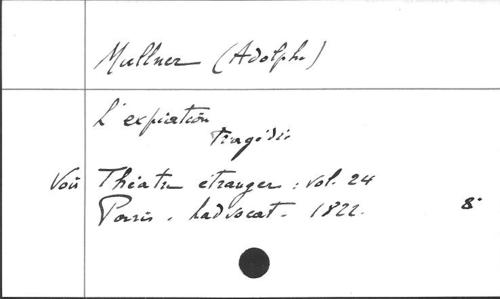 Mullner (Adolphe)
L'expiation
tragédie
Voir Théatre étranger : vol. 24
Paris. Ladvocat. 1822. 8°